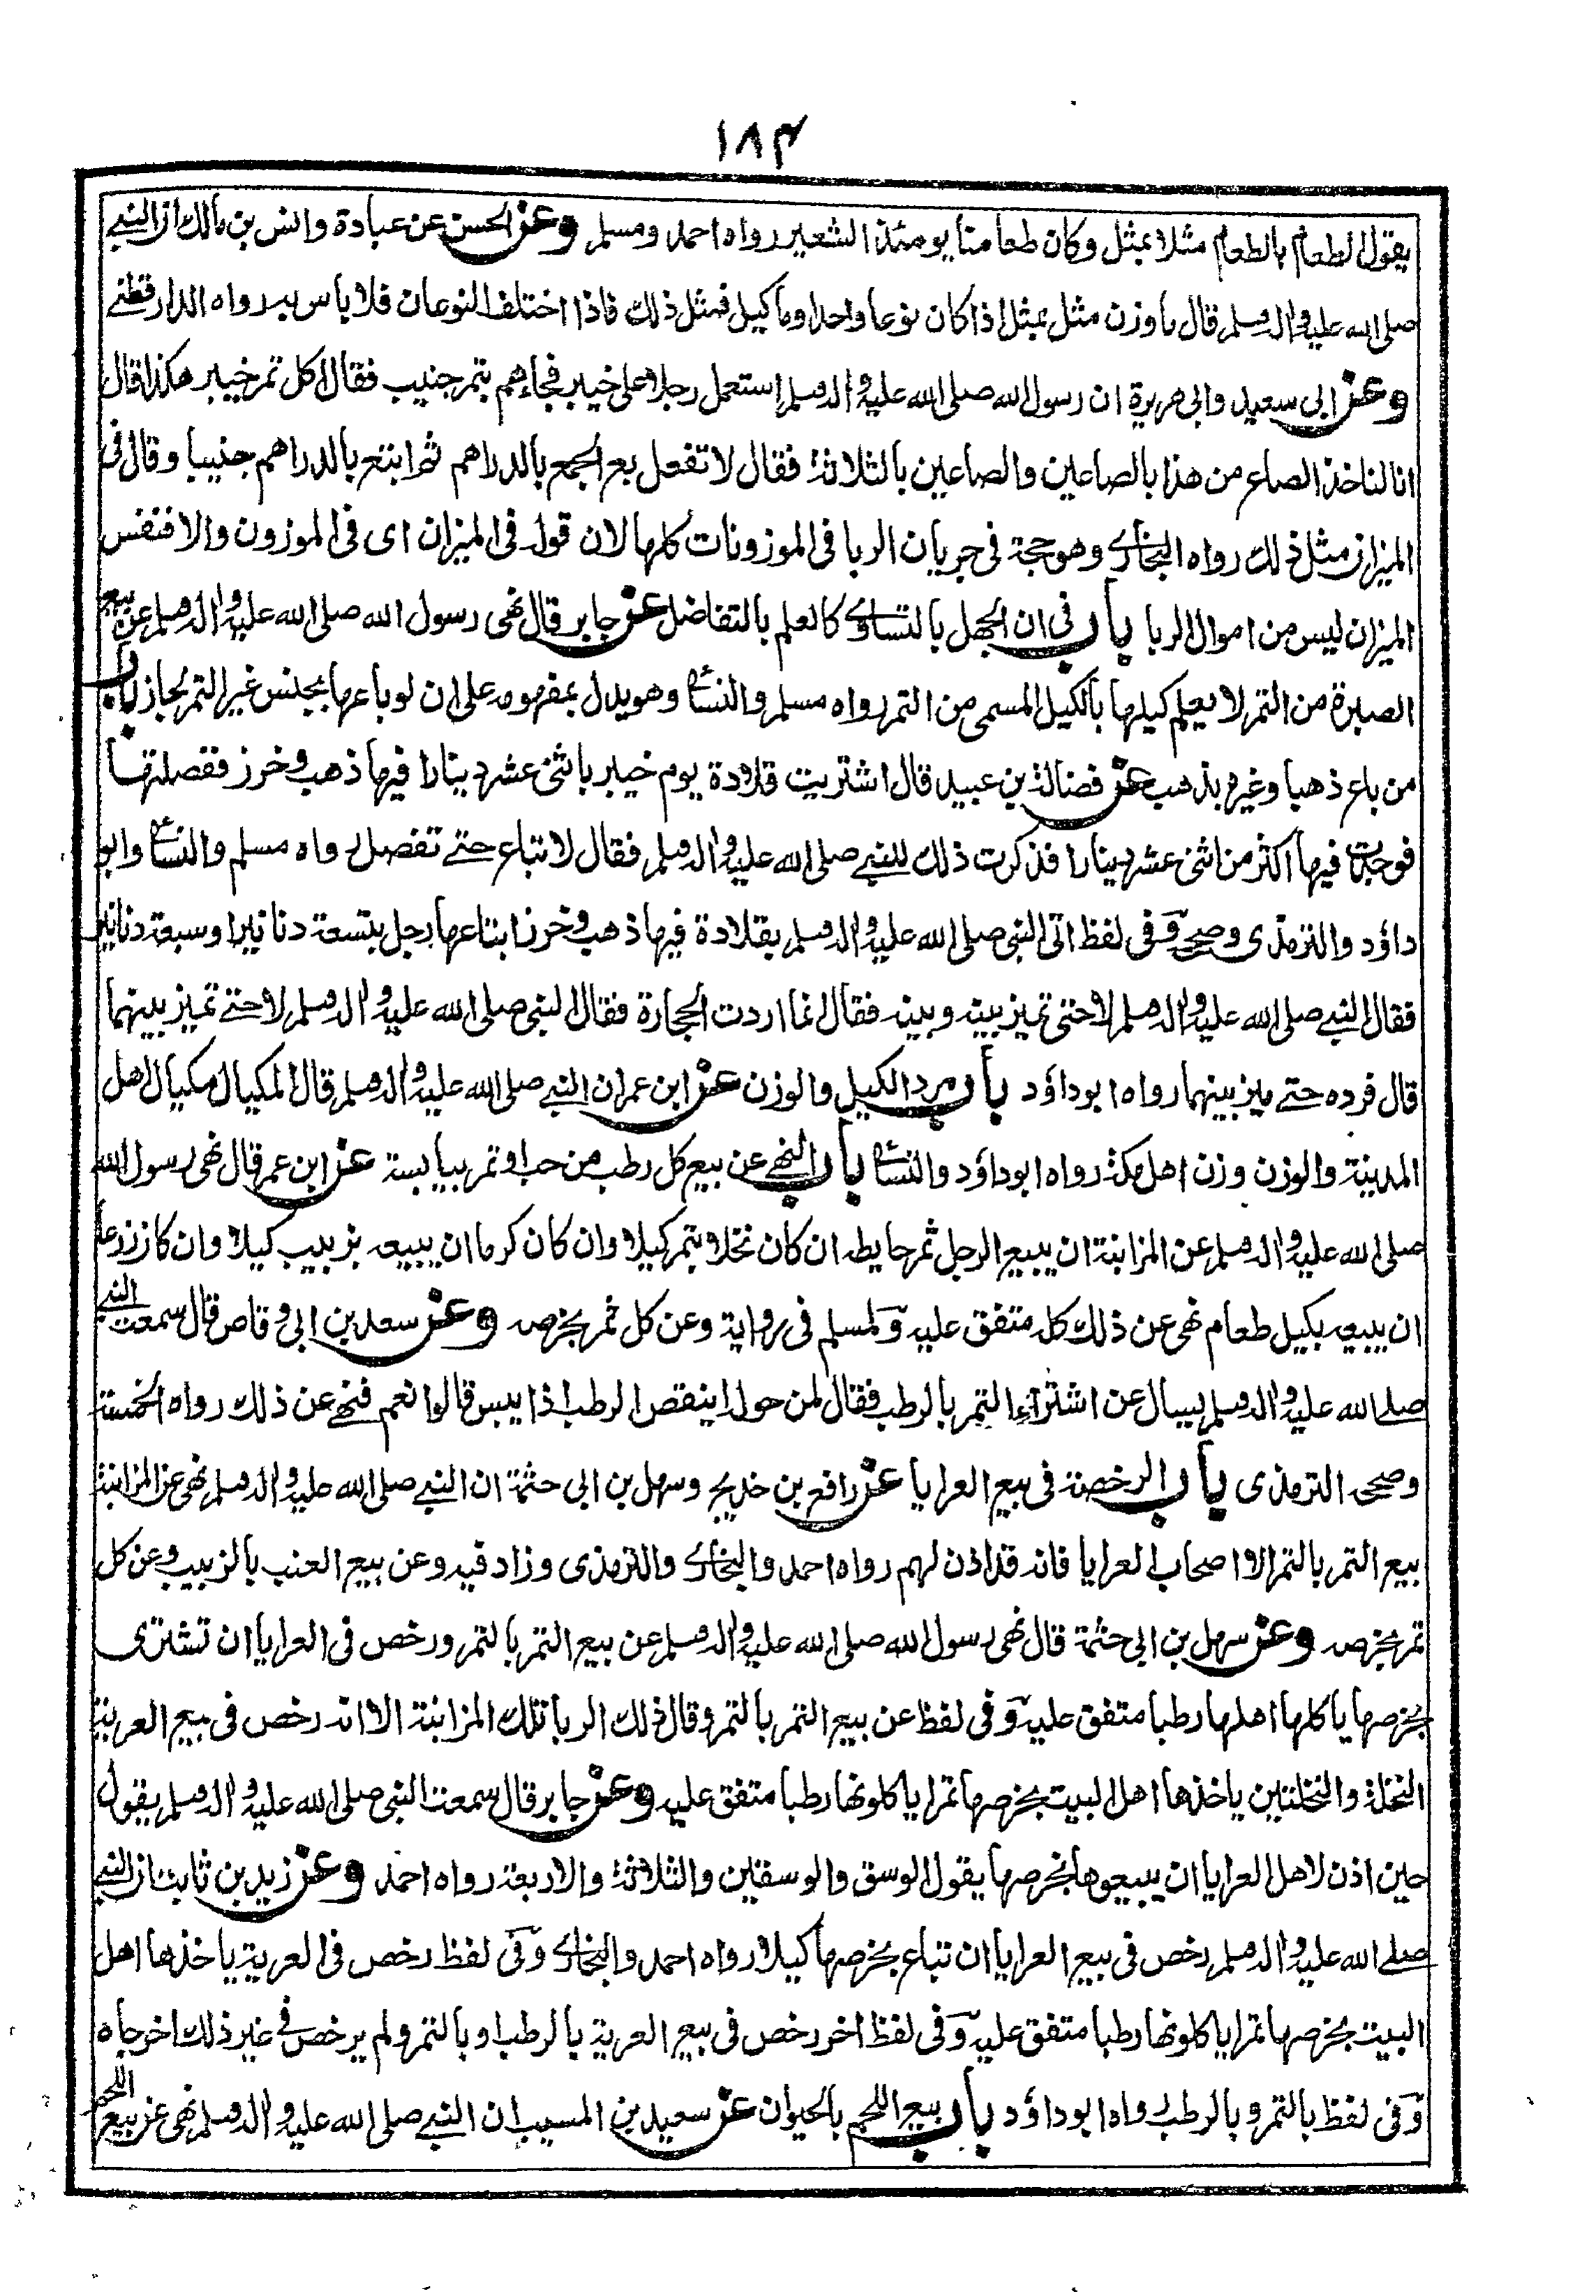 ١٨٣
يقول الطعام بالطعام مثلا بمثل وكان طعامنا يومئذ الشعير رواه احمد ومسلم وعن الحسن عن عبادة وانس بن مالك ان النبي
صلى الله عليه واله وسلم قال ما وزن مثل بمثل اذا كان نوعا واحدا وما كيل فمثل ذلك فاذا اختلف النوعان فلا باس به رواه الدارقطني
وعن ابي سعيد وابي هريرة ان رسول الله صلى الله عليه واله وسلم استعمل رجلا على خيبر فجاءهم بتمر جنيب فقال اكل تمر خيبر هكذا قال
انا لناخذ الصاع من هذا بالصاعين والصاعين بالثلاثة فقال لا تفعل بع الجمع بالدراهم ثم ابتع بالدراهم جنيبا وقال في
الميزان مثل ذلك رواه البخاري وهو حجة في جريان الربا في الموزونات كلها لان قوله في الميزان اى في الموزون والا فنفس
الميزان ليس من اموال الربا باب في ان الجهل بالتساوي كالعلم بالتفاضل عن جابر قال نهى رسول الله صلى الله عليه واله وسلم عن بيع
الصبرة من التمر لا يعلم كيلها بالكيل المسمى من التمر رواه مسلم والنسائي وهو يدل بمفهومه على ان لو باعها بجنس غير التمر لجاز باب
من باع ذهبا وغيره بذهب عن فضالة بن عبيد قال اشتريت قلادة يوم خيبر باثنى عشر دينارا فيها ذهب وخرز ففصلتها
فوجدت فيها اكثر من اثنى عشر دينارا فذكرت ذلك للنبي صلى الله عليه واله وسلم فقال لا تباع حتى تفصل رواه مسلم والنسائي وابو
داؤد والترمذى وصححه وفي لفظ اتى النبي صلى الله عليه واله وسلم بقلادة فيها ذهب وخرز ابتاعها رجل بتسعة دنانير او سبعة دنانير
فقال النبي صلى الله عليه واله وسلم لا حتى تميز بينه وبينه فقال انما اردت الحجارة فقال النبي صلى الله عليه واله وسلم لا حتى تميز بينهما
قال فرده حتى ميز بينهما رواه ابوداؤد باب مرد الكيل والوزن عن ابن عمر ان النبي صلى الله عليه واله وسلم قال المكيال مكيال اهل
المدينة والوزن وزن اهل مكة رواه ابوداؤد والنسائي باب النهي عن بيع كل رطب من حب او تمر بيابسه عن ابن عمر قال نهى رسول الله
صلى الله عليه واله وسلم عن المزابنة ان يبيع الرجل ثمر حايطه ان كان نخلا بتمر كيلا وان كان كرما ان يبيعه بزبيب كيلا وان كان زرعا
ان يبيعه بكيل طعام نهى عن ذلك كله متفق عليه ولمسلم في رواية وعن كل ثمر بخرصه وعن سعد بن ابي وقاص قال سمعت النبي
صلى الله عليه واله وسلم يسال عن اشتراء التمر بالرطب فقال لمن حوله اينقص الرطب اذا يبس قالوا نعم فنهى عن ذلك رواه الخمسة
وصححه الترمذى باب الرخصة في بيع العرايا عن رافع بن خديج وسهل بن ابي حثمة ان النبي صلى الله عليه واله وسلم نهى عن المزابنة
بيع التمر بالتمر الا اصحاب العرايا فانه قد اذن لهم رواه احمد والبخاري والترمذى وزاد فيه وعن بيع العنب بالزبيب وعن كل
تمر بخرصه وعن سهل بن ابي حثمة قال نهى رسول الله صلى الله عليه واله وسلم عن بيع التمر بالتمر ورخص في العرايا ان تشترى
بخرصها ياكلها اهلها رطبا متفق عليه وفي لفظ عن بيع التمر بالتمر وقال ذلك الربا تلك المزابنة الا انه رخص في بيع العرية
النخلة والنخلتين ياخذها اهل البيت بخرصها تمرا ياكلونها رطبا متفق عليه وعن جابر قال سمعت النبي صلى الله عليه واله وسلم يقول
حين اذن لاهل العرايا ان يبيعوها بخرصها يقول الوسق والوسقين والثلاثة والاربعة رواه احمد وعن زيد بن ثابت ان النبي
صلى الله عليه واله وسلم رخص في بيع العرايا ان تباع بخرصها كيلا رواه احمد والبخاري وفي لفظ رخص في العرية ياخذها اهل
البيت بخرصها تمرا ياكلونها رطبا متفق عليه وفي لفظ اخر رخص في بيع العرية بالرطب او بالتمر ولم يرخص في غير ذلك اخرجاه
وفي لفظ بالتمر وبالرطب رواه ابوداؤد باب بيع اللحم بالحيوان عن سعيد بن المسيب ان النبي صلى الله عليه واله وسلم نهى عن بيع اللحم